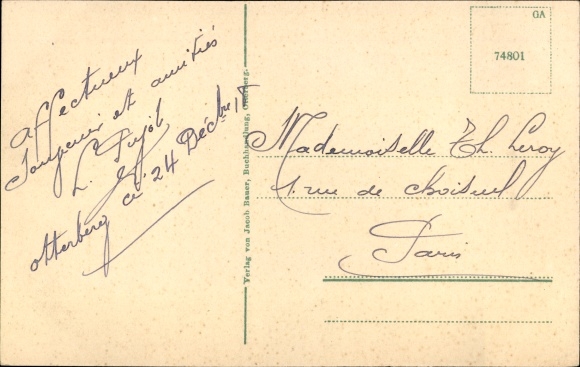 Affectueux
Souvenir et amitiés
L. Pujol
Otterberg ce 24 Décbre
GA
74801
Verlag von Jacob Bauer, Buchhandlung, Otterberg.
Mademoiselle Th. Leroy
1. rue de Choiseul
Paris